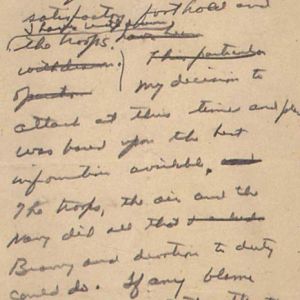 satisfactory foothold and
I have withdrawn
the troops. have been
withdrawn. This particular
operation My decision to
attack at this time and pla
was based upon the best
information available, and
The troops, the air and the
Navy did all that
Bravery and devotion to duty
could do. If any blame